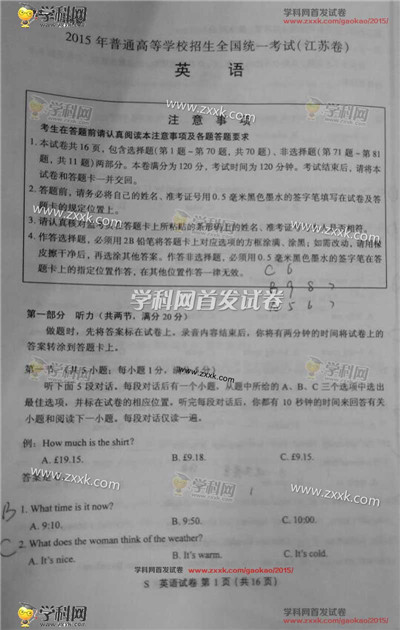 学科网
学科网首发试卷
www.zxxk.com/gaokao/2015/
2015 年普通高等学校招生全国统一考试(江苏卷)
英 语
学科网
www.zxxk.com
学科网
注 意 事 项
考生在答题前请认真阅读本注意事项及各题答题要求
1. 本试卷共 16 页，包含选择题(第 1 题~第 70 题，共 70 题)、非选择题(第 71 题~第 81
题，共 11 题)两部分。本卷满分为 120 分，考试时间为 120 分钟。考试结束后，请将本
试卷和答题卡一并交回。
2. 答题前，请务必将自己的姓名、准考证号用 0.5 毫米黑色墨水的签字笔填写在试卷及答
题卡的规定位置上。
3. 请认真核对监考员在答题卡上所粘贴的条形码上的姓名、准考证号与本人是否相符。
4. 作答选择题，必须用 2B 铅笔将答题卡上对应选项的方框涂满、涂黑；如需改动，请用橡
皮擦干净后，再选涂其他答案。作答非选择题，必须用 0.5 毫米黑色墨水的签字笔在答
题卡上的指定位置作答，在其他位置作答一律无效。
学科网首发试卷
第一部分 听力 (共两节，满分 20 分)
做题时，先将答案标在试卷上。录音内容结束后，你将有两分钟的时间将试卷上的
答案转涂到答题卡上。
第一节 (共 5 小题；每小题 1 分，满分 5 分)
www.zxxk.com
听下面 5 段对话。每段对话后有一个小题，从题中所给的 A、B、C 三个选项中选出
最佳选项，并标在试卷的相应位置。听完每段对话后，你都有 10 秒钟的时间来回答有关
小题和阅读下一小题。每段对话仅读一遍。
例: How much is the shirt?
A. £19.15. B. £9.18. C. £9.15.
学科网
学科网
答案是
www.zxxk.com
B 1. What time is it now?
A. 9:10. B. 9:50. C. 10:00.
C 2. What does the woman think of the weather?
A. It's nice. B. It's warm. C. It's cold.
S 英语试卷 第 1 页 (共 16 页)
学科网
学科网首发试卷
www.zxxk.com/gaokao/2015/